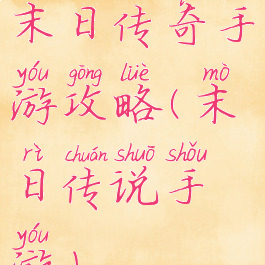 末日传奇手
yóu gōng lüè mò
游攻略(末
rì chuán shuō shǒu
日传说手
yóu
游)